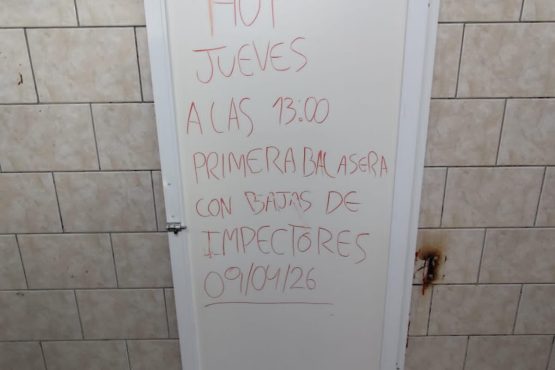 HOY
JUEVES
A LAS 13:00
PRIMERA BALASERA
CON BAJAS DE
IMPECTORES
09/04/26